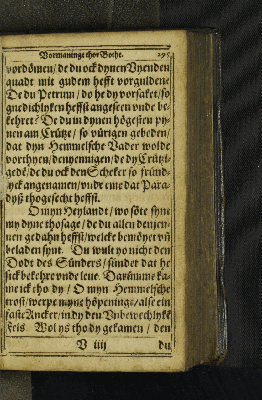 Vormaninge thor Bothe. 295
vordömen / de du ock dynen Vyenden
quadt mit gudem hefft vorgulden /
De du Petrum / do he dy vorsaket / so
gnedichlyken heffst angeseen vnde be-
kehret? De du in dynen högesten py-
nen am Crütze / so vürigen gebeden /
dat dyn Hemmelsche Vader wolde
vorthyen / den yennigen / de dy Crützi-
gedē / de du ock den Scheker so fründ-
lyck angenamen / vnde eme dat Para-
dyß thogesecht heffst.
O myn Heylandt / wo söte synt
my dyne thosage / de du allen denjen-
nen gedahn heffst / welcke bemöyet vñ
beladen synt. Du wult yo nicht den
Dodt des Sünders / sünder dat he
sick bekehre vnde leue. Darümme ka-
me ick tho dy / O myn Hemmelsche
trost / werpe myne höpeninge / alse ein
faste Ancker / in dy den Vnbewechlykē
Fels. Wol ys tho dy gekamen / den
V iiij du